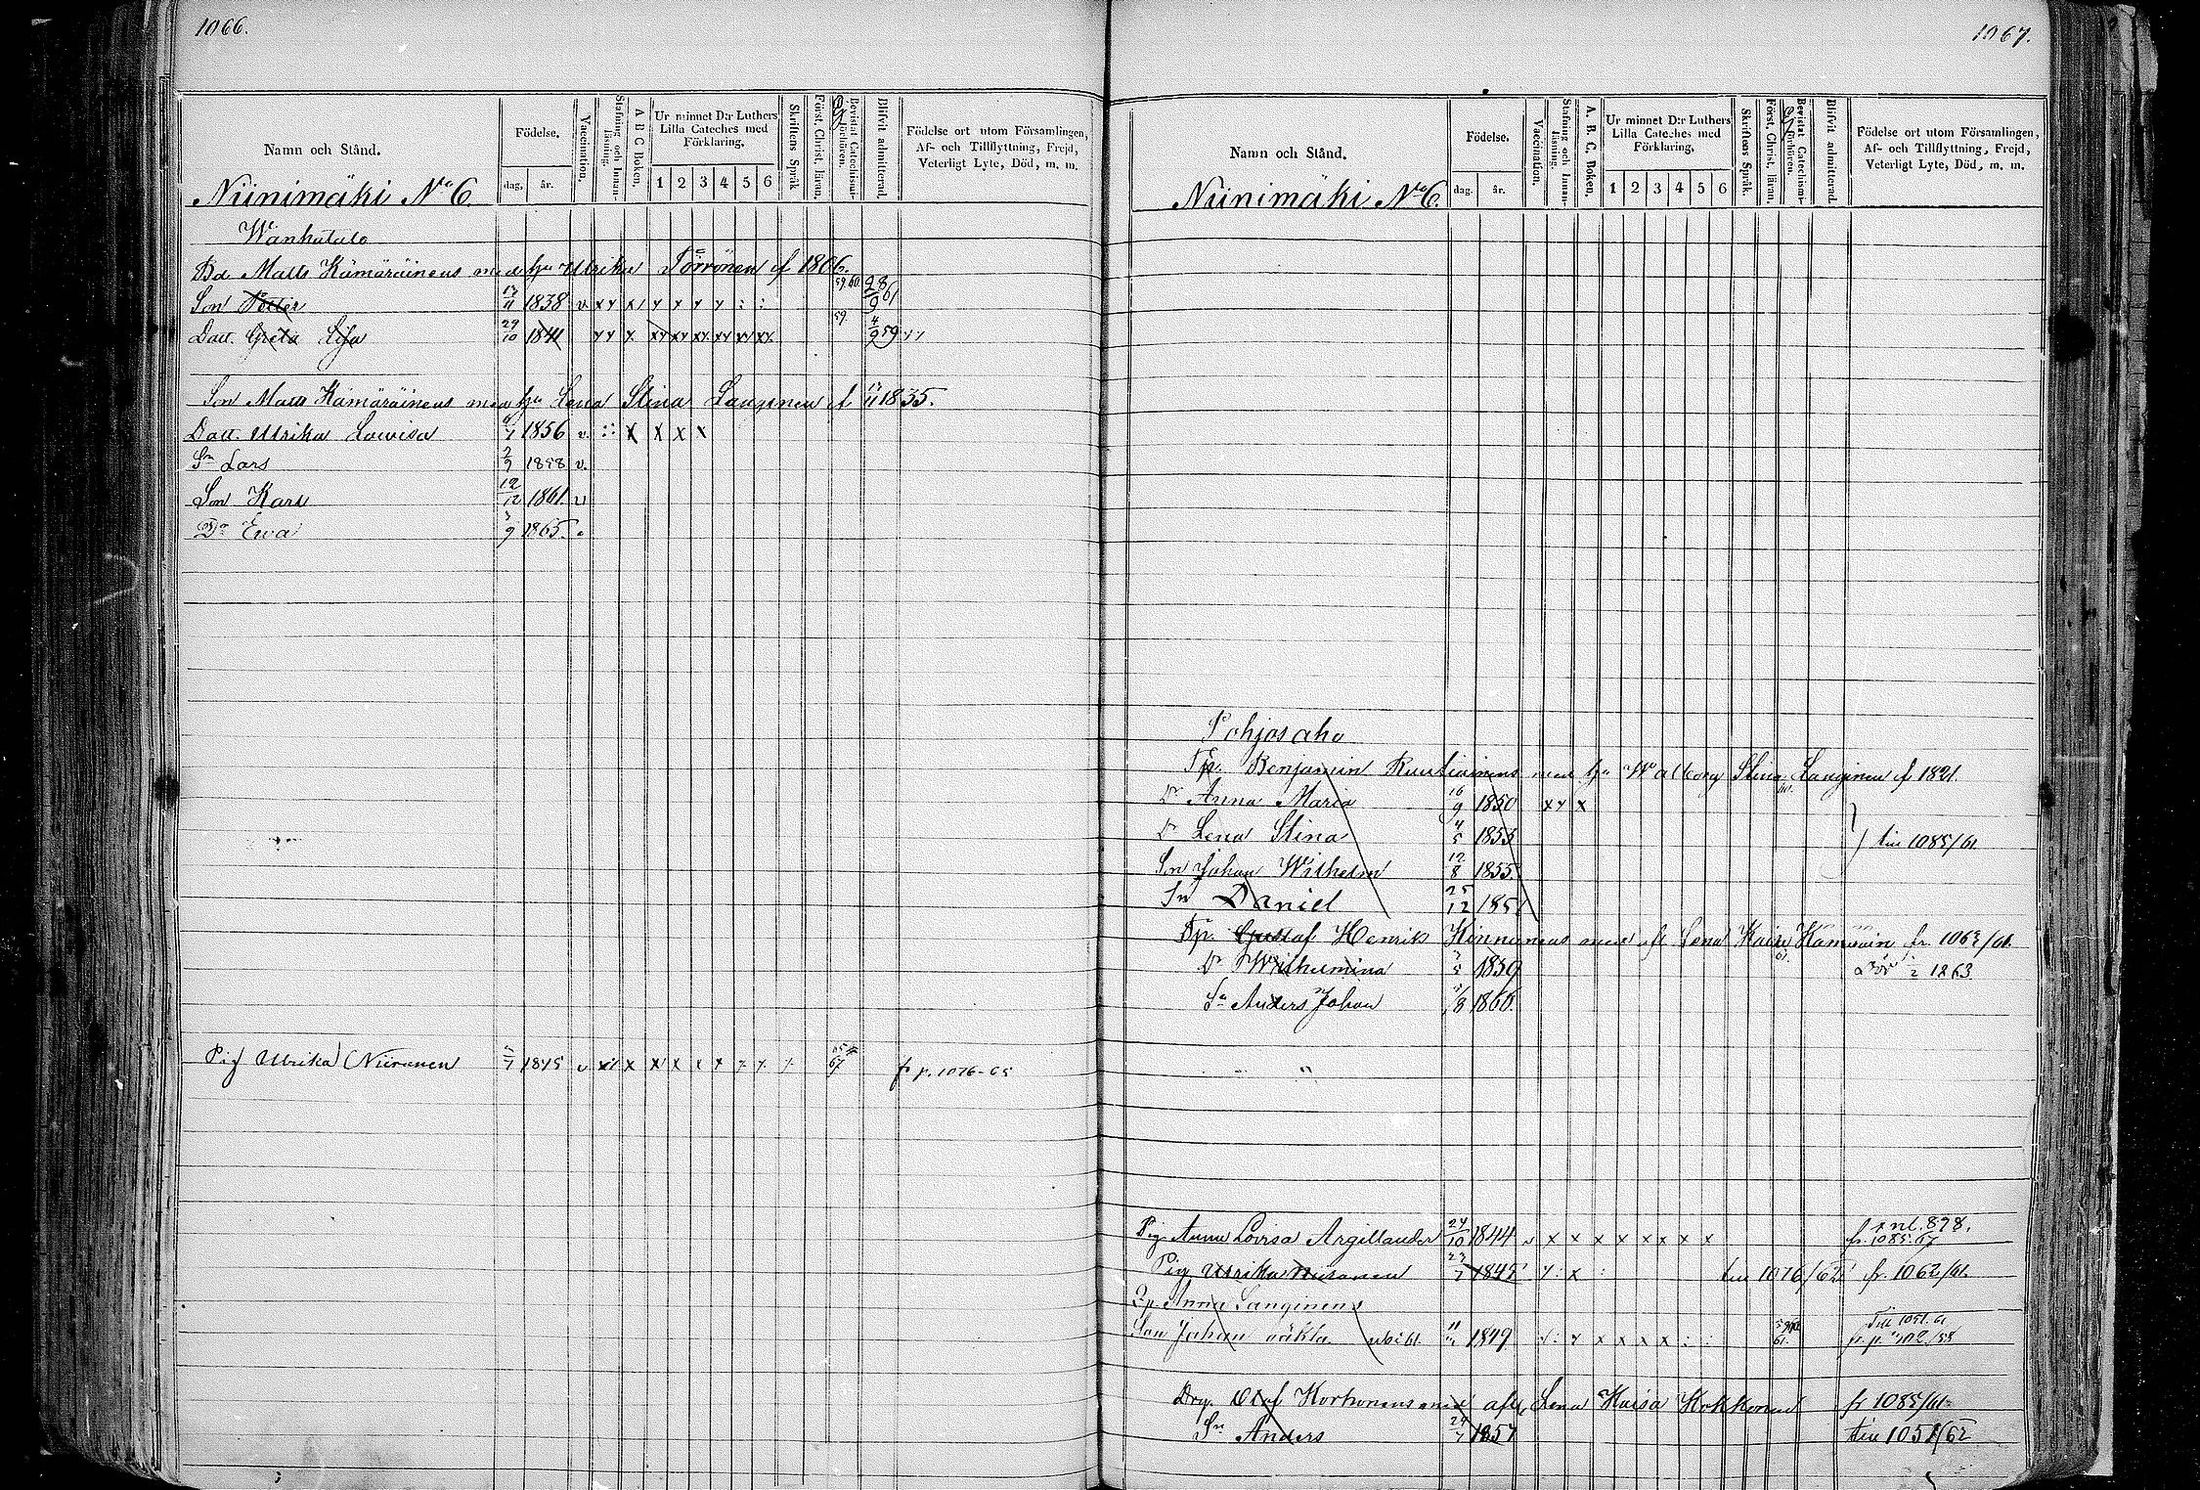 1066.
Namn och Stånd.
Födelse.
dag, år.
Vaccination,
Stafning och Innanläsning.
A B C Boken,
Ur minnet D:r Luthers Lilla Cateches med Förklaring,
1 2 3 4 5 6
Skriftens Språk
Först. Christ. läran,
Bevistat Catechismiförhören.
Blifvit admitterad.
Födelse ort utom Församlingen, Af- och Tillflyttning, Frejd, Veterligt Lyte, Död, m. m.
Niinimäki No 6.
Wanhatalo
Bd. Matts Kämäräinens med hu Ulrika Törrönen f 1806.
Son Petter 17/11 1838 v x y x / y x y y : : 59. 60. 28/9 61
Dott. Greta Lisa 29/10 1841 y y x xy xy xy xy xy xy 59 4/9 59
Son Matts Kämäräinens med hu Lena Stina Langinen f 17/11 1835.
Dott. Ulrika Lowisa 1856 v. :: x x x x
Sn Lars 2/9 1858 v.
Son Karl 12/12 1861. v
Dr Ewa 3/9 1865.
Pig Ulrika Niiranen 1845 v x x x x x x 67 fr p. 1076-65
1067.
Namn och Stånd.
Födelse.
dag. år.
Vaccination.
Stafning och Innanläsning.
A. B. C. Boken.
Ur minnet D:r Luthers Lilla Cateches med Förklaring,
1 2 3 4 5 6
Skriftens Språk.
Först. Christ. läran.
Bevistat Catechismiförhören.
Blifvit admitterad.
Födelse ort utom Församlingen, Af- och Tillflyttning, Frejd, Veterligt Lyte, Död, m. m.
Niinimäki No 6.
Pohjosaho
Tp. Benjamin Ruutiainens med hu Walborg Stina Langinen f 1821.
Dr Anna Maria 16/9 1850 x y x 60.
Dr Lena Stina 4/5 1853 } till 1085/61
Son Johan Wilhelm 12/8 1855
Sn Daniel 25/12 185
Tp. Gustaf Henrik Kinnunens med af Lena Kaisa fr. 1062/61.
Dr Wilhelmina 5 1859 61. död 1863
Sn Anders Johan /8 1860.
Pig Anna Lovisa Argillander 24/10 1844 v x x x x x x x 878. fr. 1085. 67
Pig Ulrika Niiranen 23/7 1845 y : x : till 1076/62 fr. 1062/61.
Anna Langinens
Son Johan oäkta 11 1849 y : y x x x x : : 61. Till 1051. 61 fr. p. 1102/58
Drg. Olof Korhonens med af Lena Kaisa Kokkonen fr 1085/61
Sn Anders 24/7 1857 till 1051/62